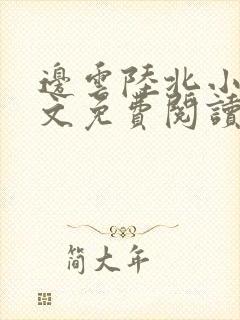 邊雲陸北小
文免費閱讀
简大年